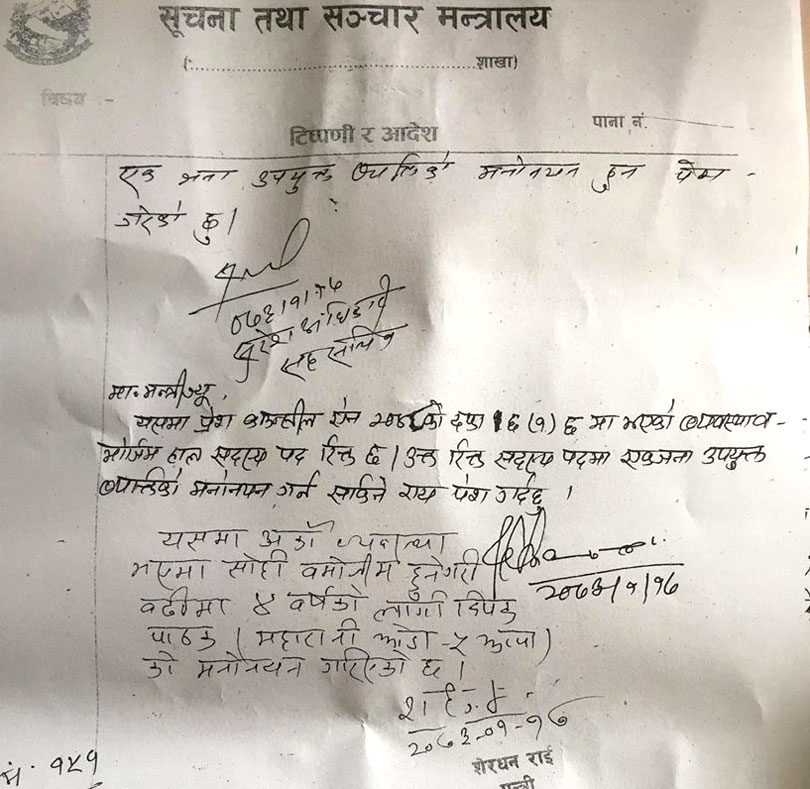 सूचना तथा सञ्चार मन्त्रालय
(:........................................शाखा)
विषय :-
पाना नं.
टिप्पणी र आदेश
एक जना उपयुक्त व्यक्तिको मनोनयन हुन पेश
गरेको छु।
सुरेश अधिकारी
सह सचिव
मा. मन्त्रीज्यू,
यसमा प्रेश काउन्सील ऐन २०४८ को दफा (१) छ मा भएको व्यवस्थाव-
मोजिम हाल सदस्य पद रिक्त छ। उक्त रिक्त सदस्य पदमा एकजना उपयुक्त
व्यक्तिको मनोनयन गर्न सकिने राय पेश गर्दछु ।
यसमा अर्को व्यवस्था
भएमा सोही बमोजिम हुनेगरी
बढीमा ४ वर्षको लागी दिपक
पाठक (महारानी झोडा-५ झापा)
को मनोनयन गरिएको छ ।
२०७३-०१-१७
शेरधन राई
मन्त्री
नं. १५१